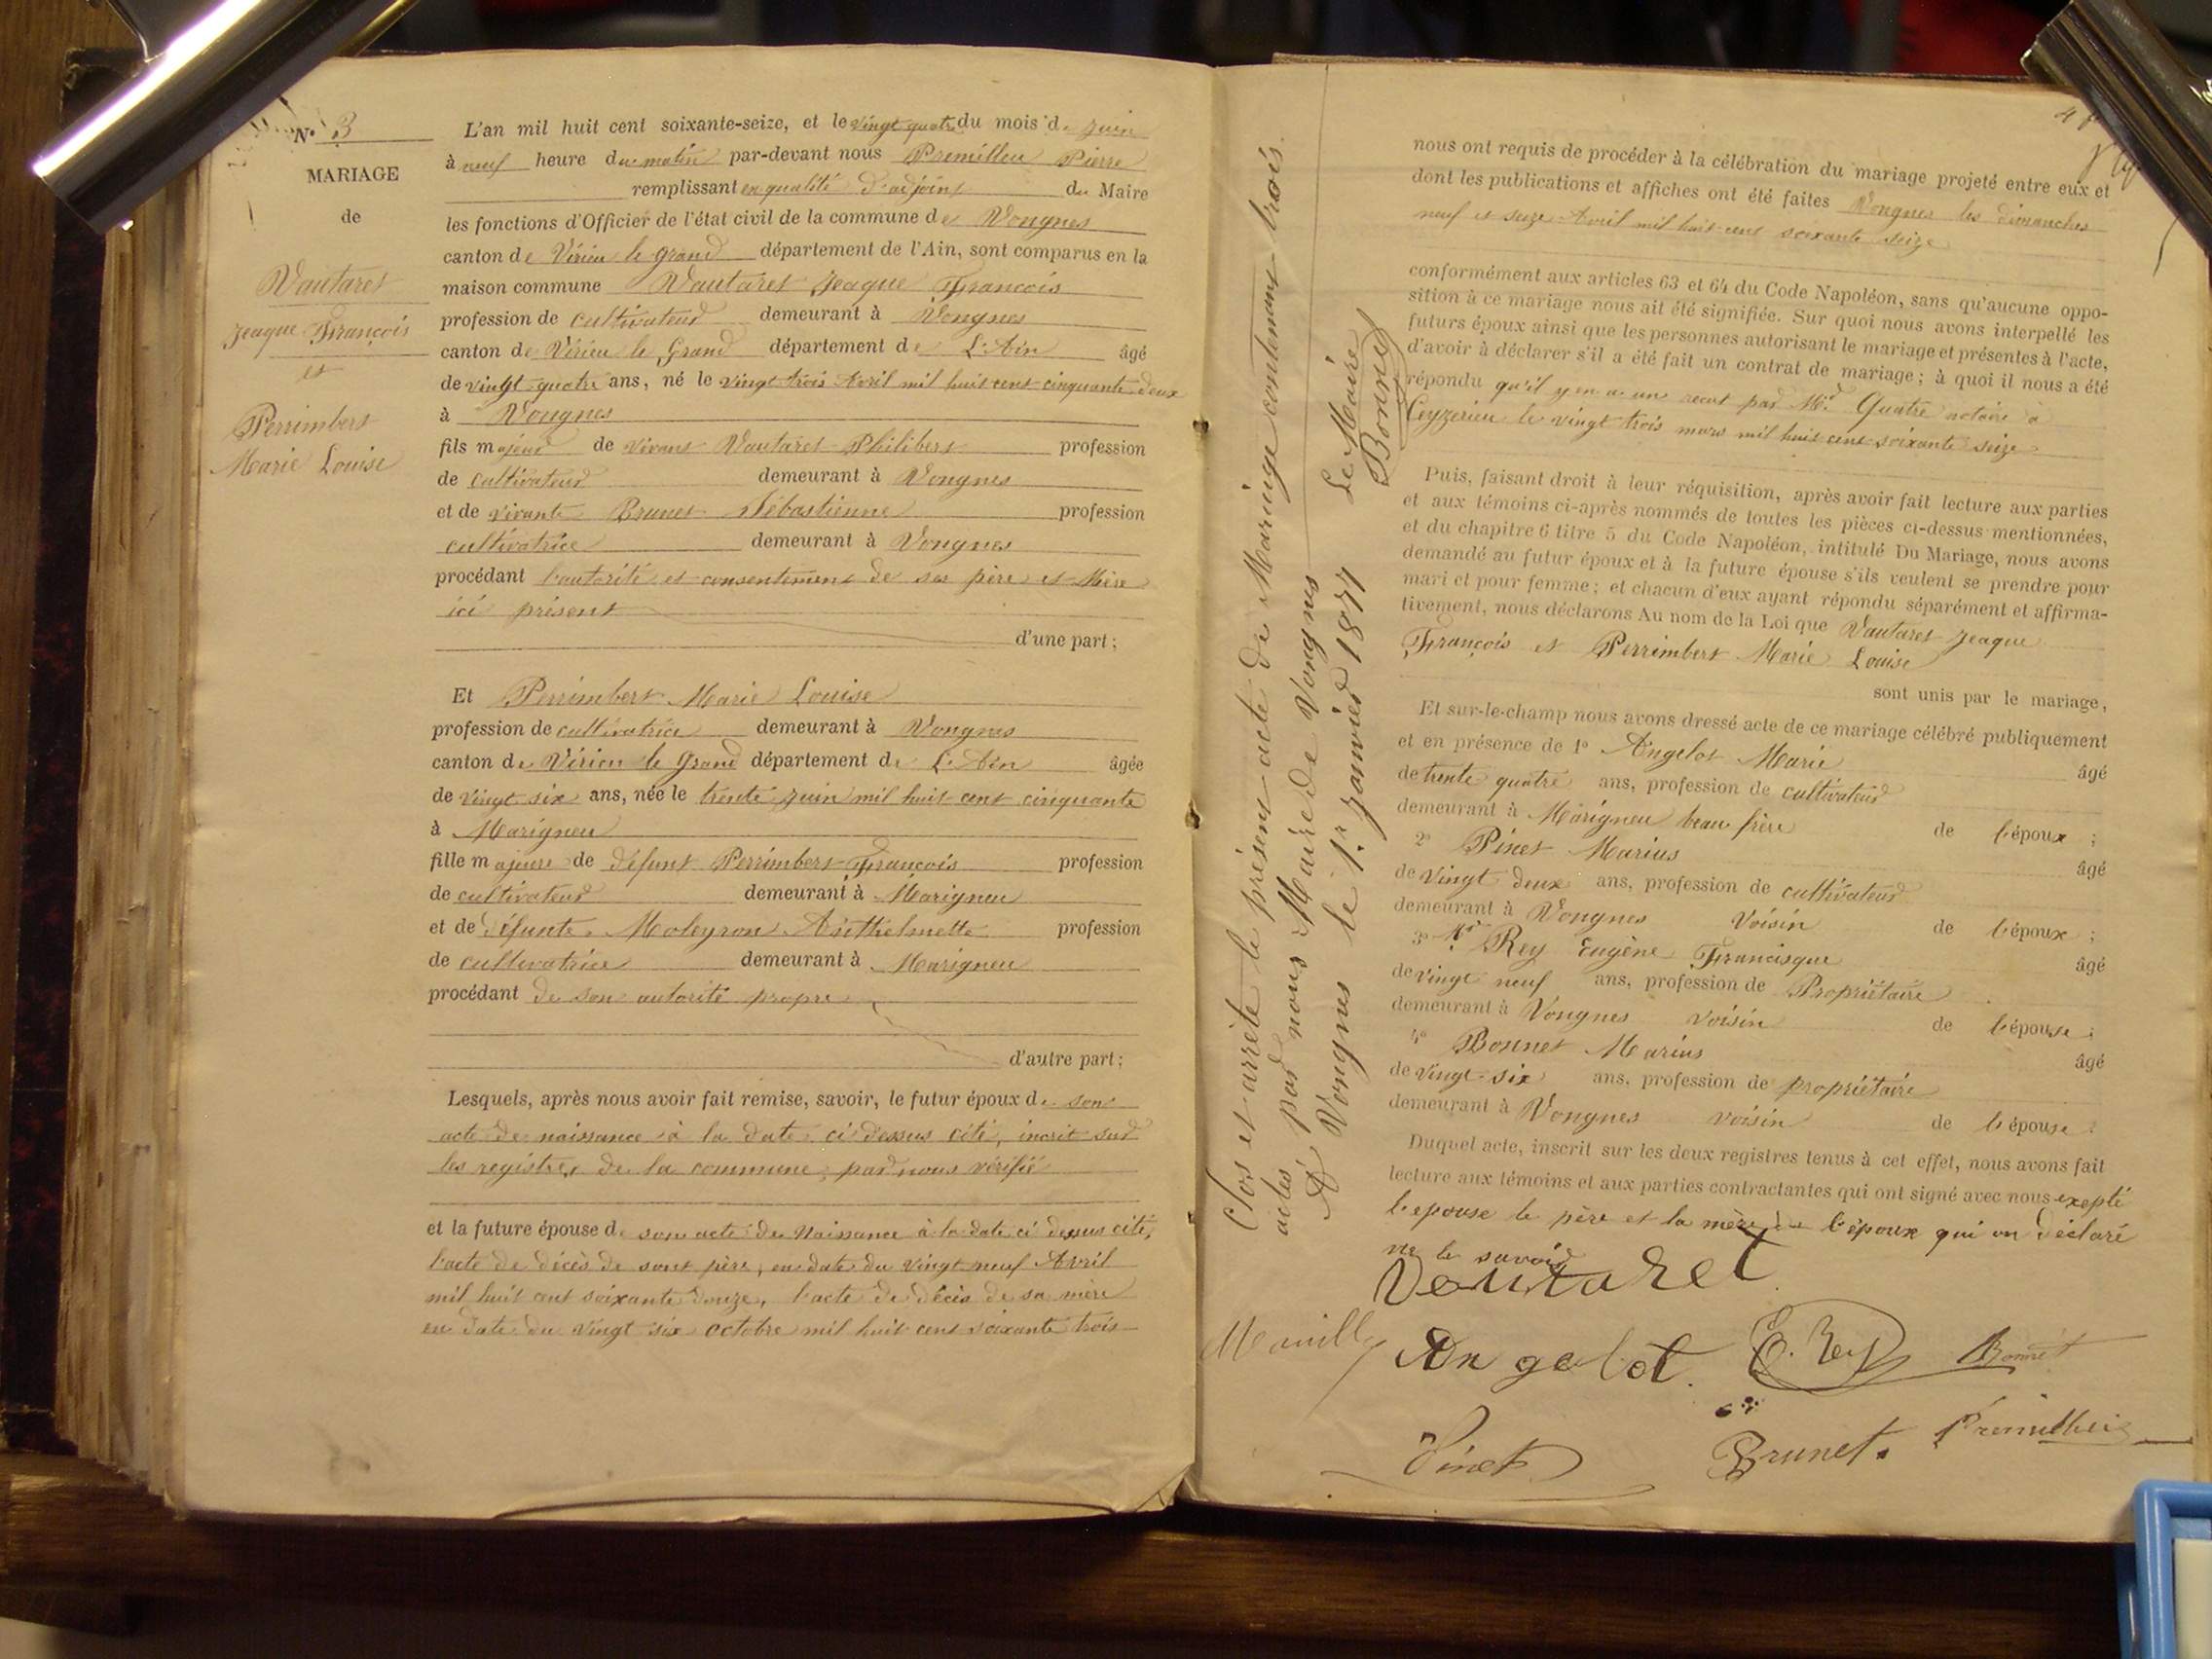 N° 3
MARIAGE
de
Vautaret
Jeaque François
et
Perrimbert
Marie Louise
L'an mil huit cent soixante-seize, et le vingt quatre du mois de Juin
à neuf heure du matin par-devant nous Premilleu Pierre
remplissant en qualité d'adjoint du Maire
les fonctions d'Officier de l'état civil de la commune de Vongnes
canton de Virieu le Grand département de l'Ain, sont comparus en la
maison commune Vautaret Jeaque François
profession de cultivateur demeurant à Vongnes
canton de Virieu le Grand département de L'Ain âgé
de vingt-quatre ans, né le vingt trois Avril mil huit cent cinquante-deux
à Vongnes
fils majeur de vivant Vautaret Philibert profession
de cultivateur demeurant à Vongnes
et de vivante Brunet Sébastienne profession
cultivatrice demeurant à Vongnes
procédant l'autorité et consentement de ses père et Mère
ici présent
d'une part;
Et Perrimbert Marie Louise
profession de cultivatrice demeurant à Vongnes
canton de Virieu le Grand département de L'Ain âgée
de vingt six ans, née le trente Juin mil huit cent cinquante
à Marigneu
fille majeure de défunt Perrimbert François profession
de cultivateur demeurant à Marigneu
et de défunte Moleyron Anthelmette profession
de cultivatrice demeurant à Marigneu
procédant de son autorité propre
d'autre part;
Lesquels, après nous avoir fait remise, savoir, le futur époux de son
acte de naissance à la date ci dessus cité, incrit sur
les registres de la commune par nous vérifié
et la future épouse de son acte de Naissance à la date ci dessus cité,
l'acte de décès de sont père, en date du vingt neuf Avril
mil huit cent soixante douze, l'acte de décès de sa mère
en date du vingt six octobre mil huit cent soixante trois
Clos et arrêté le présent acte de Mariage contenant trois
actes par nous Maire de Vongnes
A Vongnes le 1er janvier 1877 Le Maire
Bonnet
nous ont requis de procéder à la célébration du mariage projeté entre eux et
dont les publications et affiches ont été faites Vongnes les dimanches
neuf et seize Avril mil huit cent soixante seize
conformément aux articles 63 et 64 du Code Napoléon, sans qu'aucune oppo-
sition à ce mariage nous ait été signifiée. Sur quoi nous avons interpellé les
futurs époux ainsi que les personnes autorisant le mariage et présentes à l'acte,
d'avoir à déclarer s'il a été fait un contrat de mariage; à quoi il nous a été
répondu qu'il y en a un recut par Mr Quatre notaire à
Ceyzerieu le vingt trois mars mil huit cent soixante seize
Puis, faisant droit à leur réquisition, après avoir fait lecture aux parties
et aux témoins ci-après nommés de toutes les pièces ci-dessus mentionnées,
et du chapitre 6 titre 5 du Code Napoléon, intitulé Du Mariage, nous avons
demandé au futur époux et à la future épouse s'ils veulent se prendre pour
mari et pour femme; et chacun d'eux ayant répondu séparément et affirma-
tivement, nous déclarons Au nom de la Loi que Vautaret Jeaque
François et Perrimbert Marie Louise
sont unis par le mariage,
Et sur-le-champ nous avons dressé acte de ce mariage célébré publiquement
et en présence de 1° Angelot Marie âgé
de trente quatre ans, profession de cultivateur
demeurant à Marigneu beau frère de l'époux;
2° Pinet Marius âgé
de vingt deux ans, profession de cultivateur
demeurant à Vongnes voisin de l'époux;
3° Mr Rey Eugène Francisque âgé
de vingt neuf ans, profession de Propriétaire
demeurant à Vongnes voisin de l'épouse;
4° Bonnet Marius âgé
de vingt-six ans, profession de propriétaire
demeurant à Vongnes voisin de l'épouse.
Duquel acte, inscrit sur les deux registres tenus à cet effet, nous avons fait
lecture aux témoins et aux parties contractantes qui ont signé avec nous exepté
l'epouse le père et la mère de l'époux qui on déclaré
ne le savoir
Vautaret
Angelot E. Rey Bonnet
Pinet Brunet Premilleu